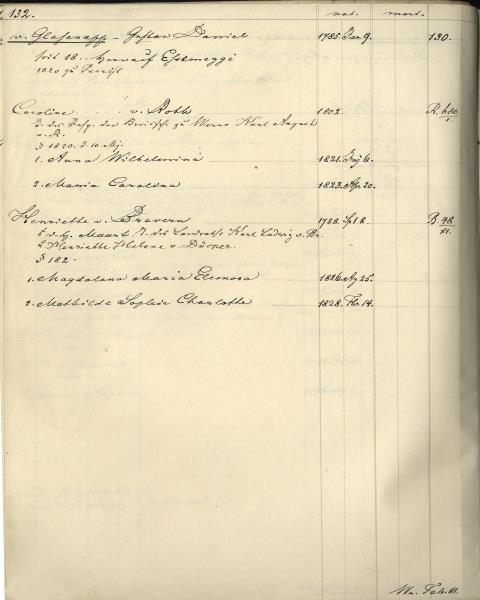 132. nat. mort.
v. Glasenapp - Gustav Daniel 1785 Jan. 9. 130.
seit 18.. Herr auf
1820 zu
Caroline . . . . v. Roth 1802 R.
T. des Besg. der zu Werro Karl August
v. R.
§ 1820. d. 10. Mz.
1. Anna Wilhelmina 1821. 6.
2. Maria Carolina 1823. Apr. 20.
Henriette v. Bravern 1788. Spt. 8. B. 48/XI.
T. des Landraths Karl Ludwig v. Br.
& Henriette Helene v. Dücker.
§ 182.
1. Magdalena Maria Eleonora 1826. Ag. 25.
2. Mathilde Sophie Charlotte 1828. Fbr. 14.
Tab. III.